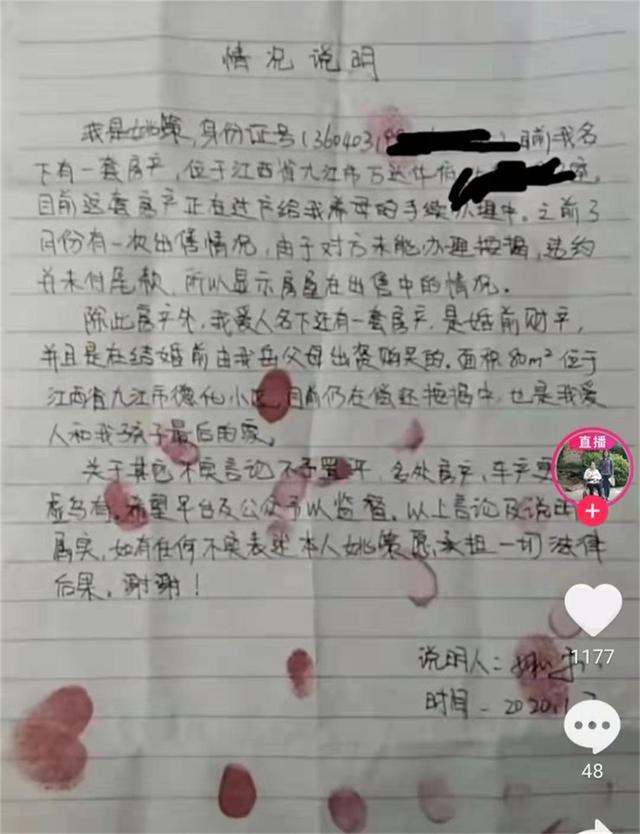 情况说明
我是姚策,身份证号(360403199 ),目前我名
下有一套房产,位于江西省九江市万达
目前这套房产正在过户给我养母的手续办理中。之前3
月份有一次出售情况,由于对方未能办理按揭,违约
并未付尾款,所以显示房屋在出售中的情况。
除此房产外,我爱人名下还有一套房产,是婚前财产,
并且是在结婚前由我岳父母出资购买的。面积80m²位于
江西省九江市德化小区,目前仍在偿还按揭中,也是我爱
人和我孩子最后的家。
关于其它不实言论不予置评,名处房产,车产更
虚乌有。希望平台及公众予以监督。以上言论及说
属实,如有任何不实表述本人姚策愿承担一切法律
后果。谢谢!
说明人:姚策
时间-2020.11.
直播
1177
48